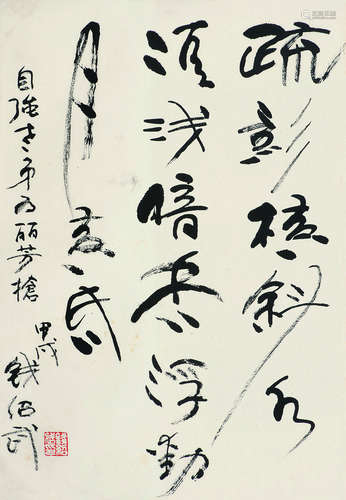 疏影横斜水
清浅暗香浮動
月黄昏
自强老弟为丽芳槍
甲戌
钱绍武